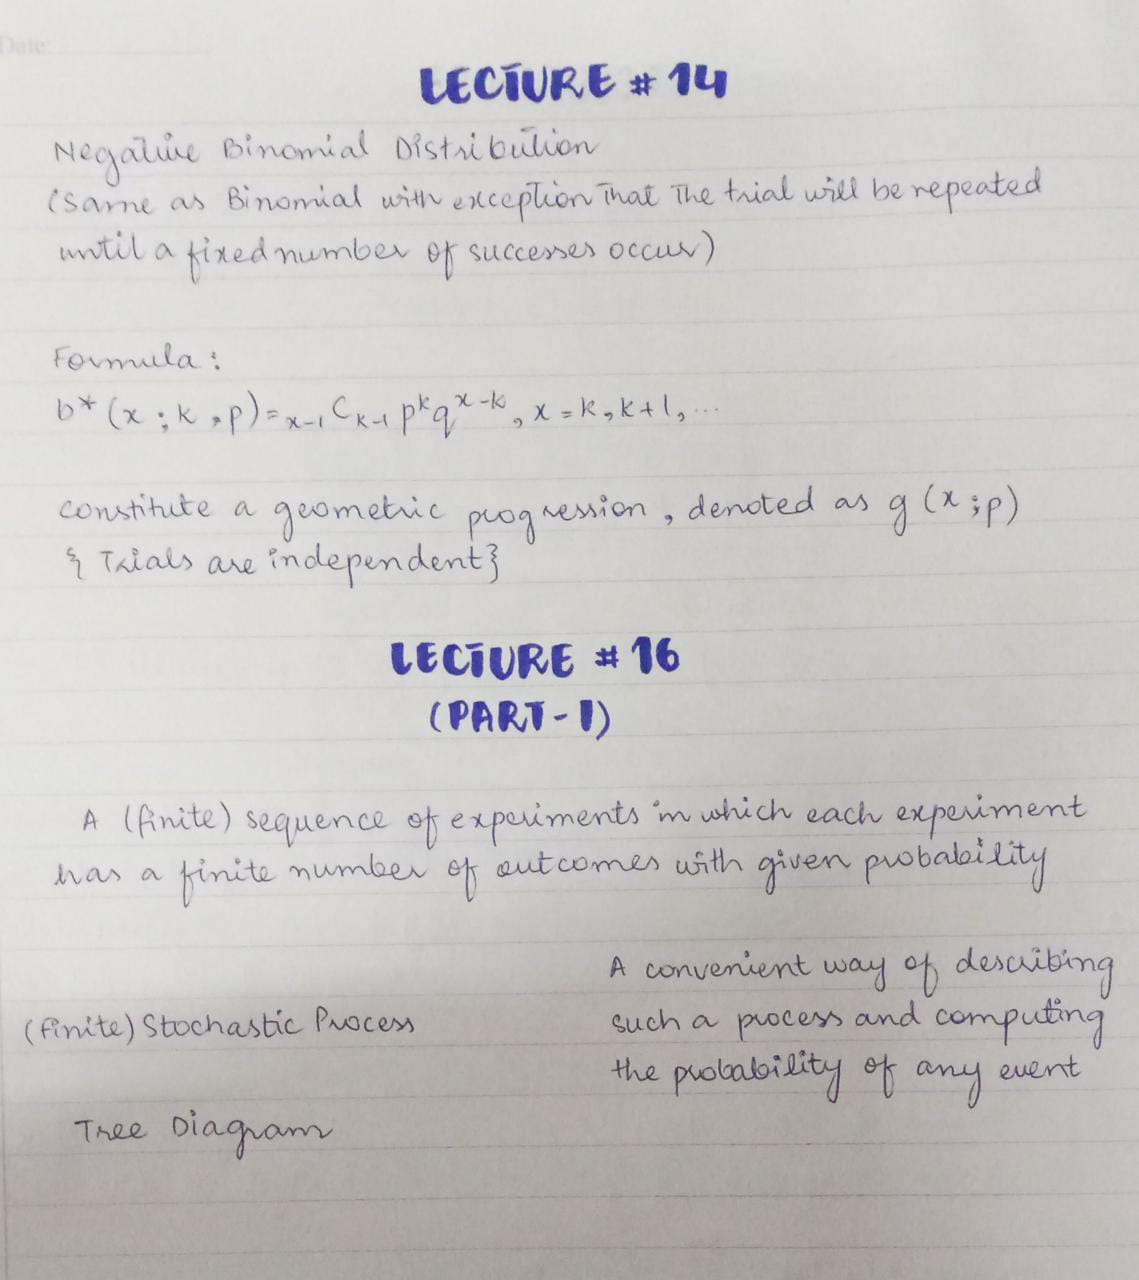 Date:
LECTURE # 14
Negative Binomial Distribution
(same as Binomial with exception that the trial will be repeated
until a fixed number of successes occur)
Formula:
b*(x;k,p)=ₓ₋₁Cₖ₋₁ pᵏqˣ⁻ᵏ, x=k,k+1,...
constitute a geometric progression, denoted as g(x;p)
{Trials are independent}
LECTURE # 16
(PART-1)
A (finite) sequence of experiments in which each experiment
has a finite number of outcomes with given probability
(finite) Stochastic Process
A convenient way of describing
such a process and computing
the probability of any event
Tree Diagram